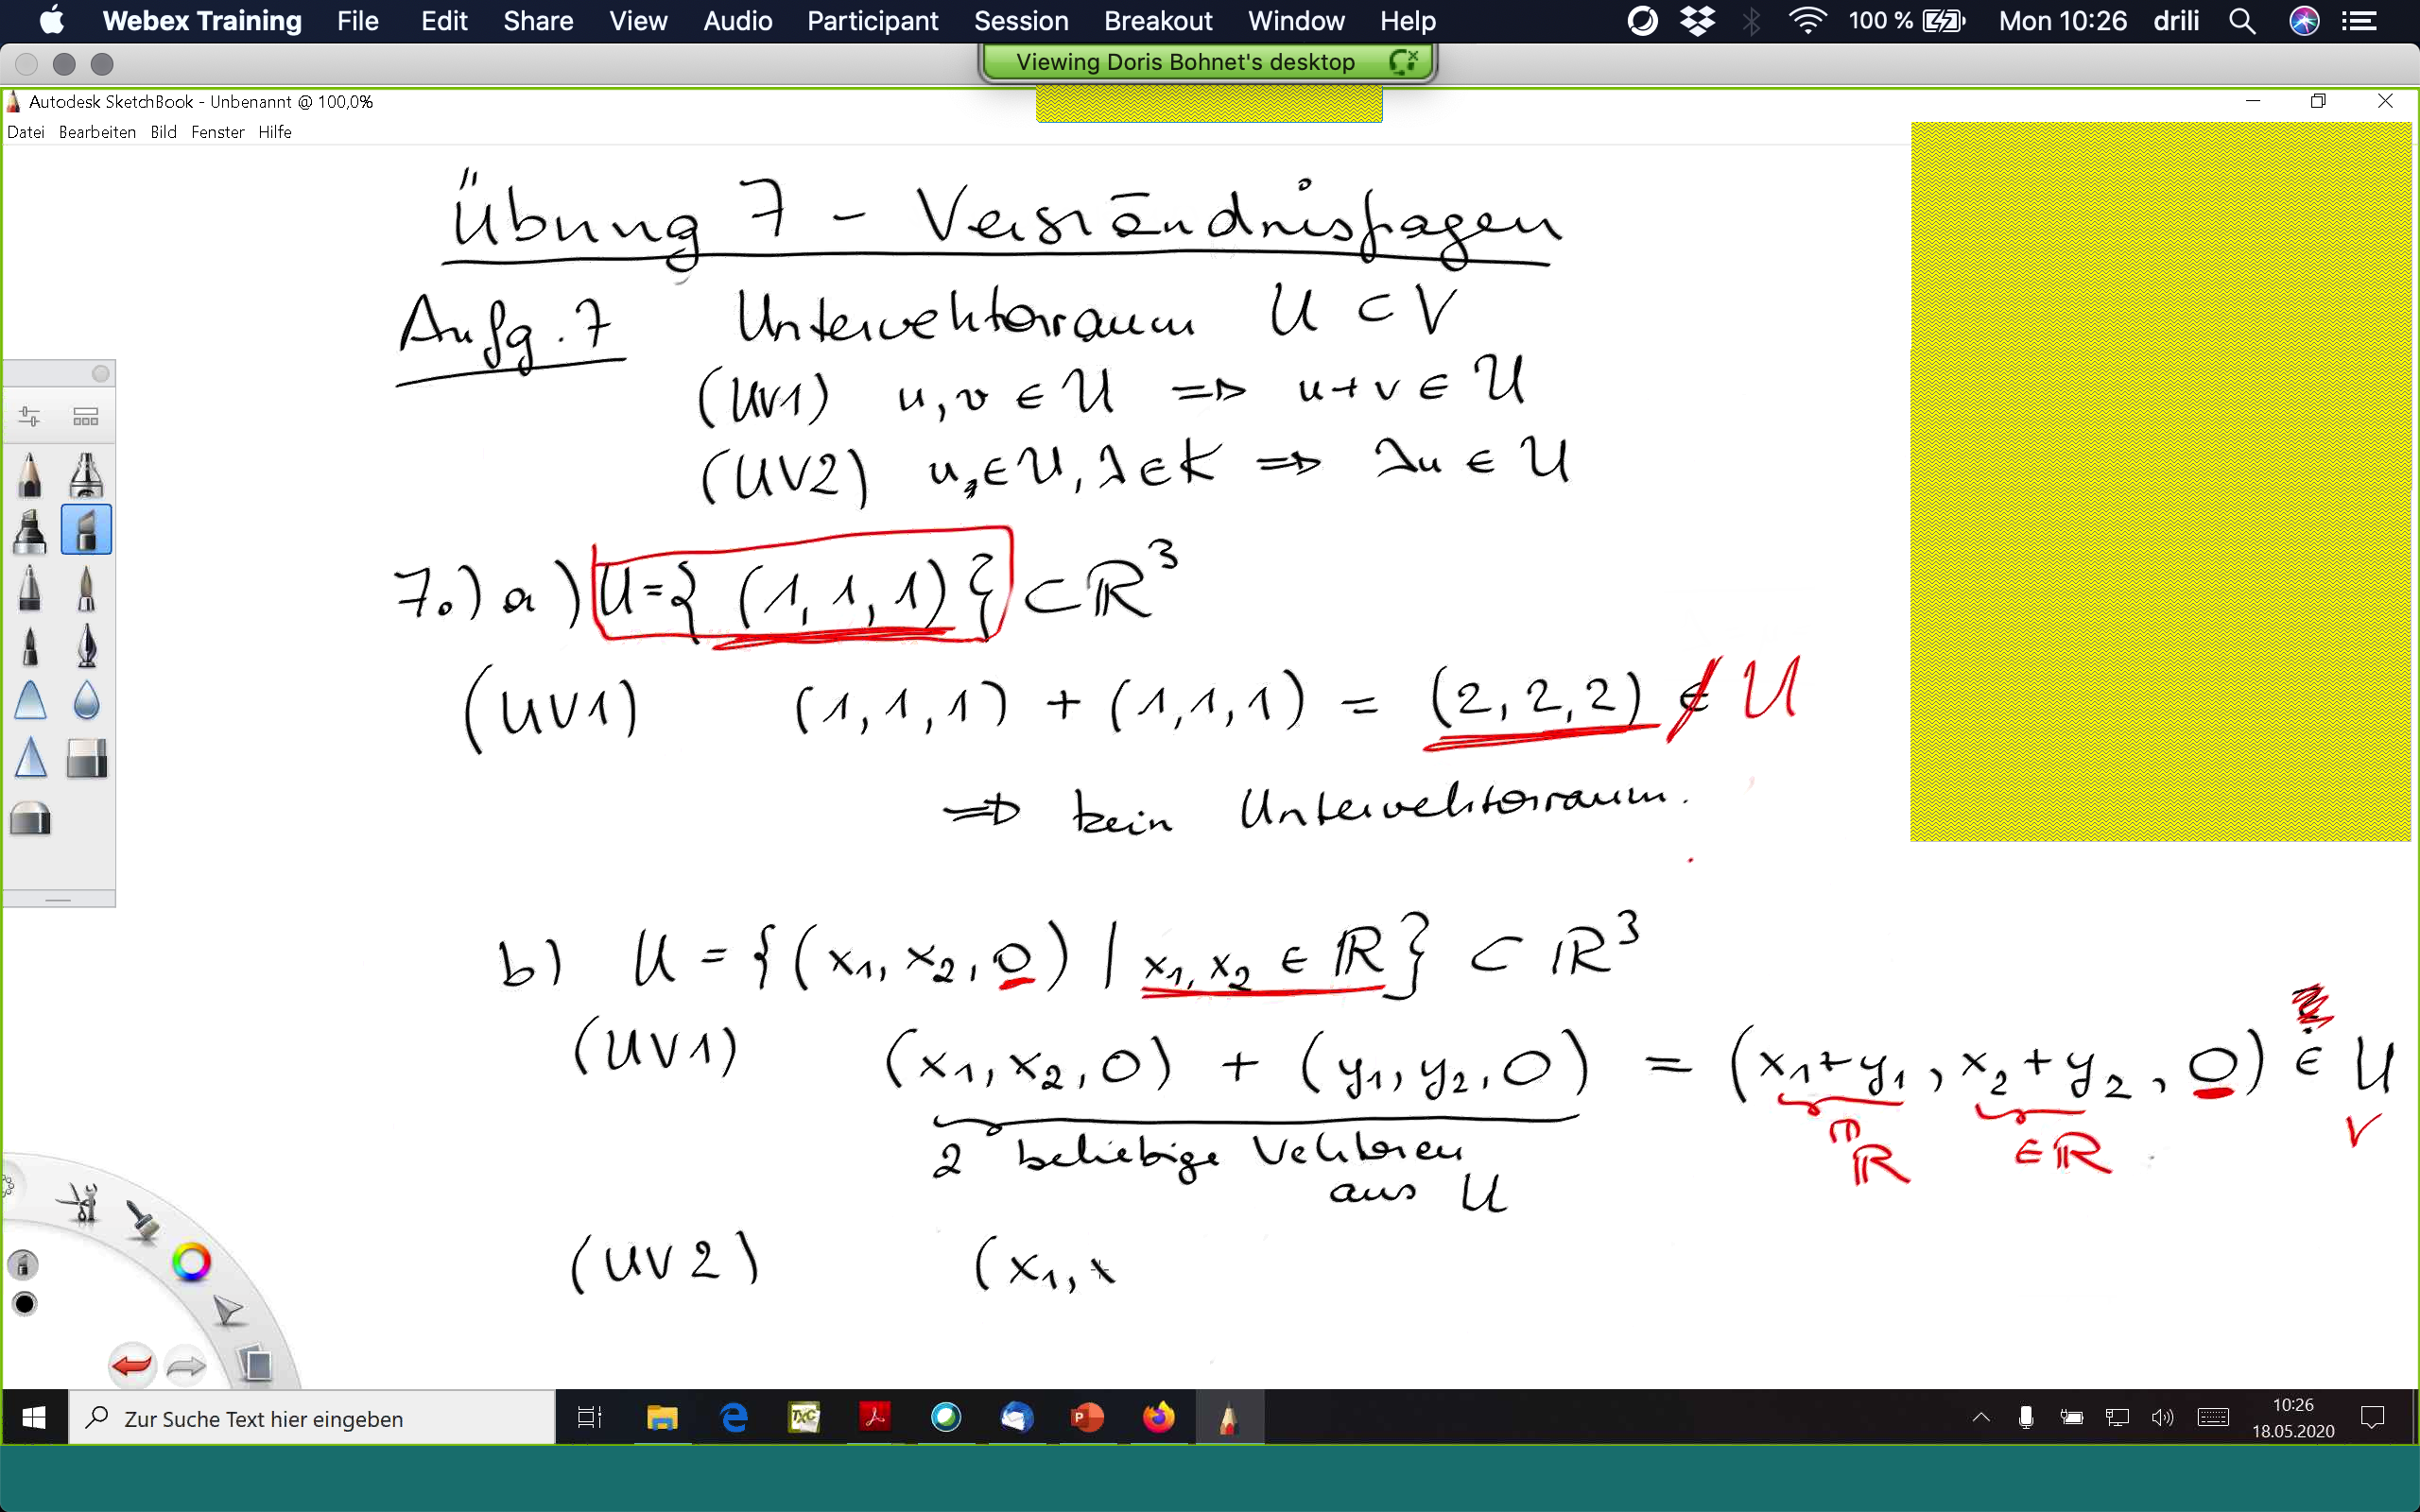 Webex Training File Edit Share View Audio Participant Session Breakout Window Help 100 % Mon 10:26 drili
Viewing Doris Bohnet's desktop
Autodesk SketchBook - Unbenannt @ 100,0%
Datei Bearbeiten Bild Fenster Hilfe
Übung 7 - Verständnisfragen
Aufg. 7 Untervektorraum U ⊂ V
(UV1) u, v ∈ U ⇒ u+v ∈ U
(UV2) u, ∈ U, λ ∈ K ⇒ λu ∈ U
7.) a) U = { (1, 1, 1) } ⊂ ℝ³
(UV1) (1, 1, 1) + (1, 1, 1) = (2, 2, 2) ∉ U
⇒ kein Untervektorraum.
b) U = {(x₁, x₂, 0) | x₁, x₂ ∈ ℝ} ⊂ ℝ³
(UV1) (x₁, x₂, 0) + (y₁, y₂, 0) = (x₁+y₁, x₂+y₂, 0) ∈ U
∈ ℝ ∈ ℝ ✓
2 beliebige Vektoren
aus U
(UV2) (x₁, x
Zur Suche Text hier eingeben
TXC
P
10:26
18.05.2020